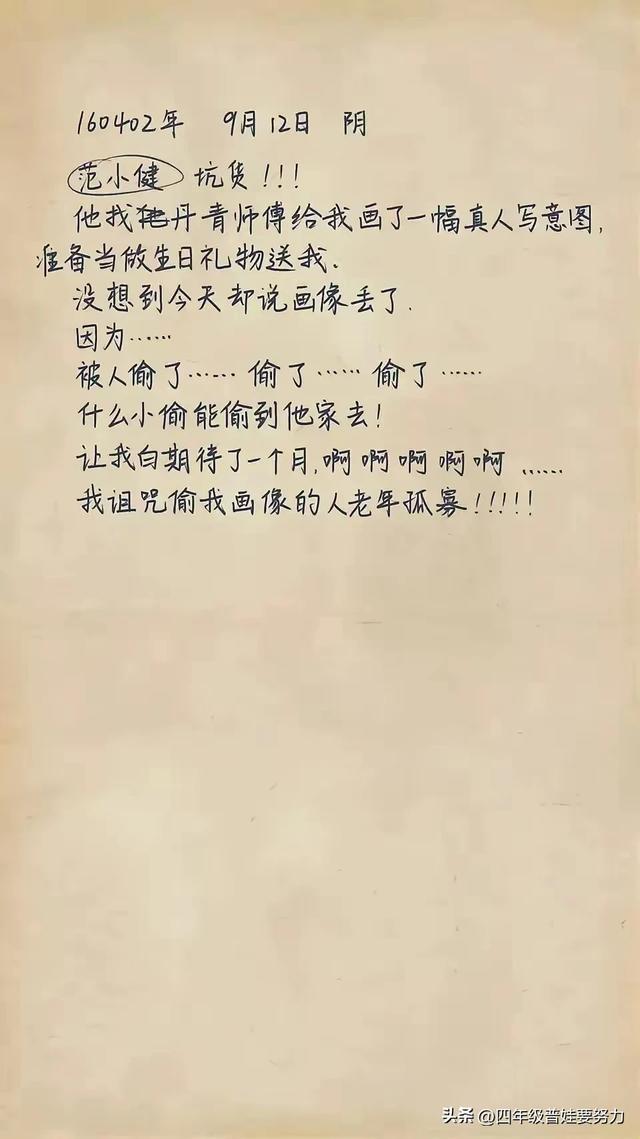 160402年 9月12日 阴
范小健 坑货!!!
他找丹青师傅给我画了一幅真人写意图,
准备当做生日礼物送我.
没想到今天却说画像丢了.
因为……
被人偷了…… 偷了…… 偷了……
什么小偷能偷到他家去!
让我白期待了一个月,啊啊啊啊啊……
我诅咒偷我画像的人老年孤寡!!!!!
头条 @四年级普娃要努力